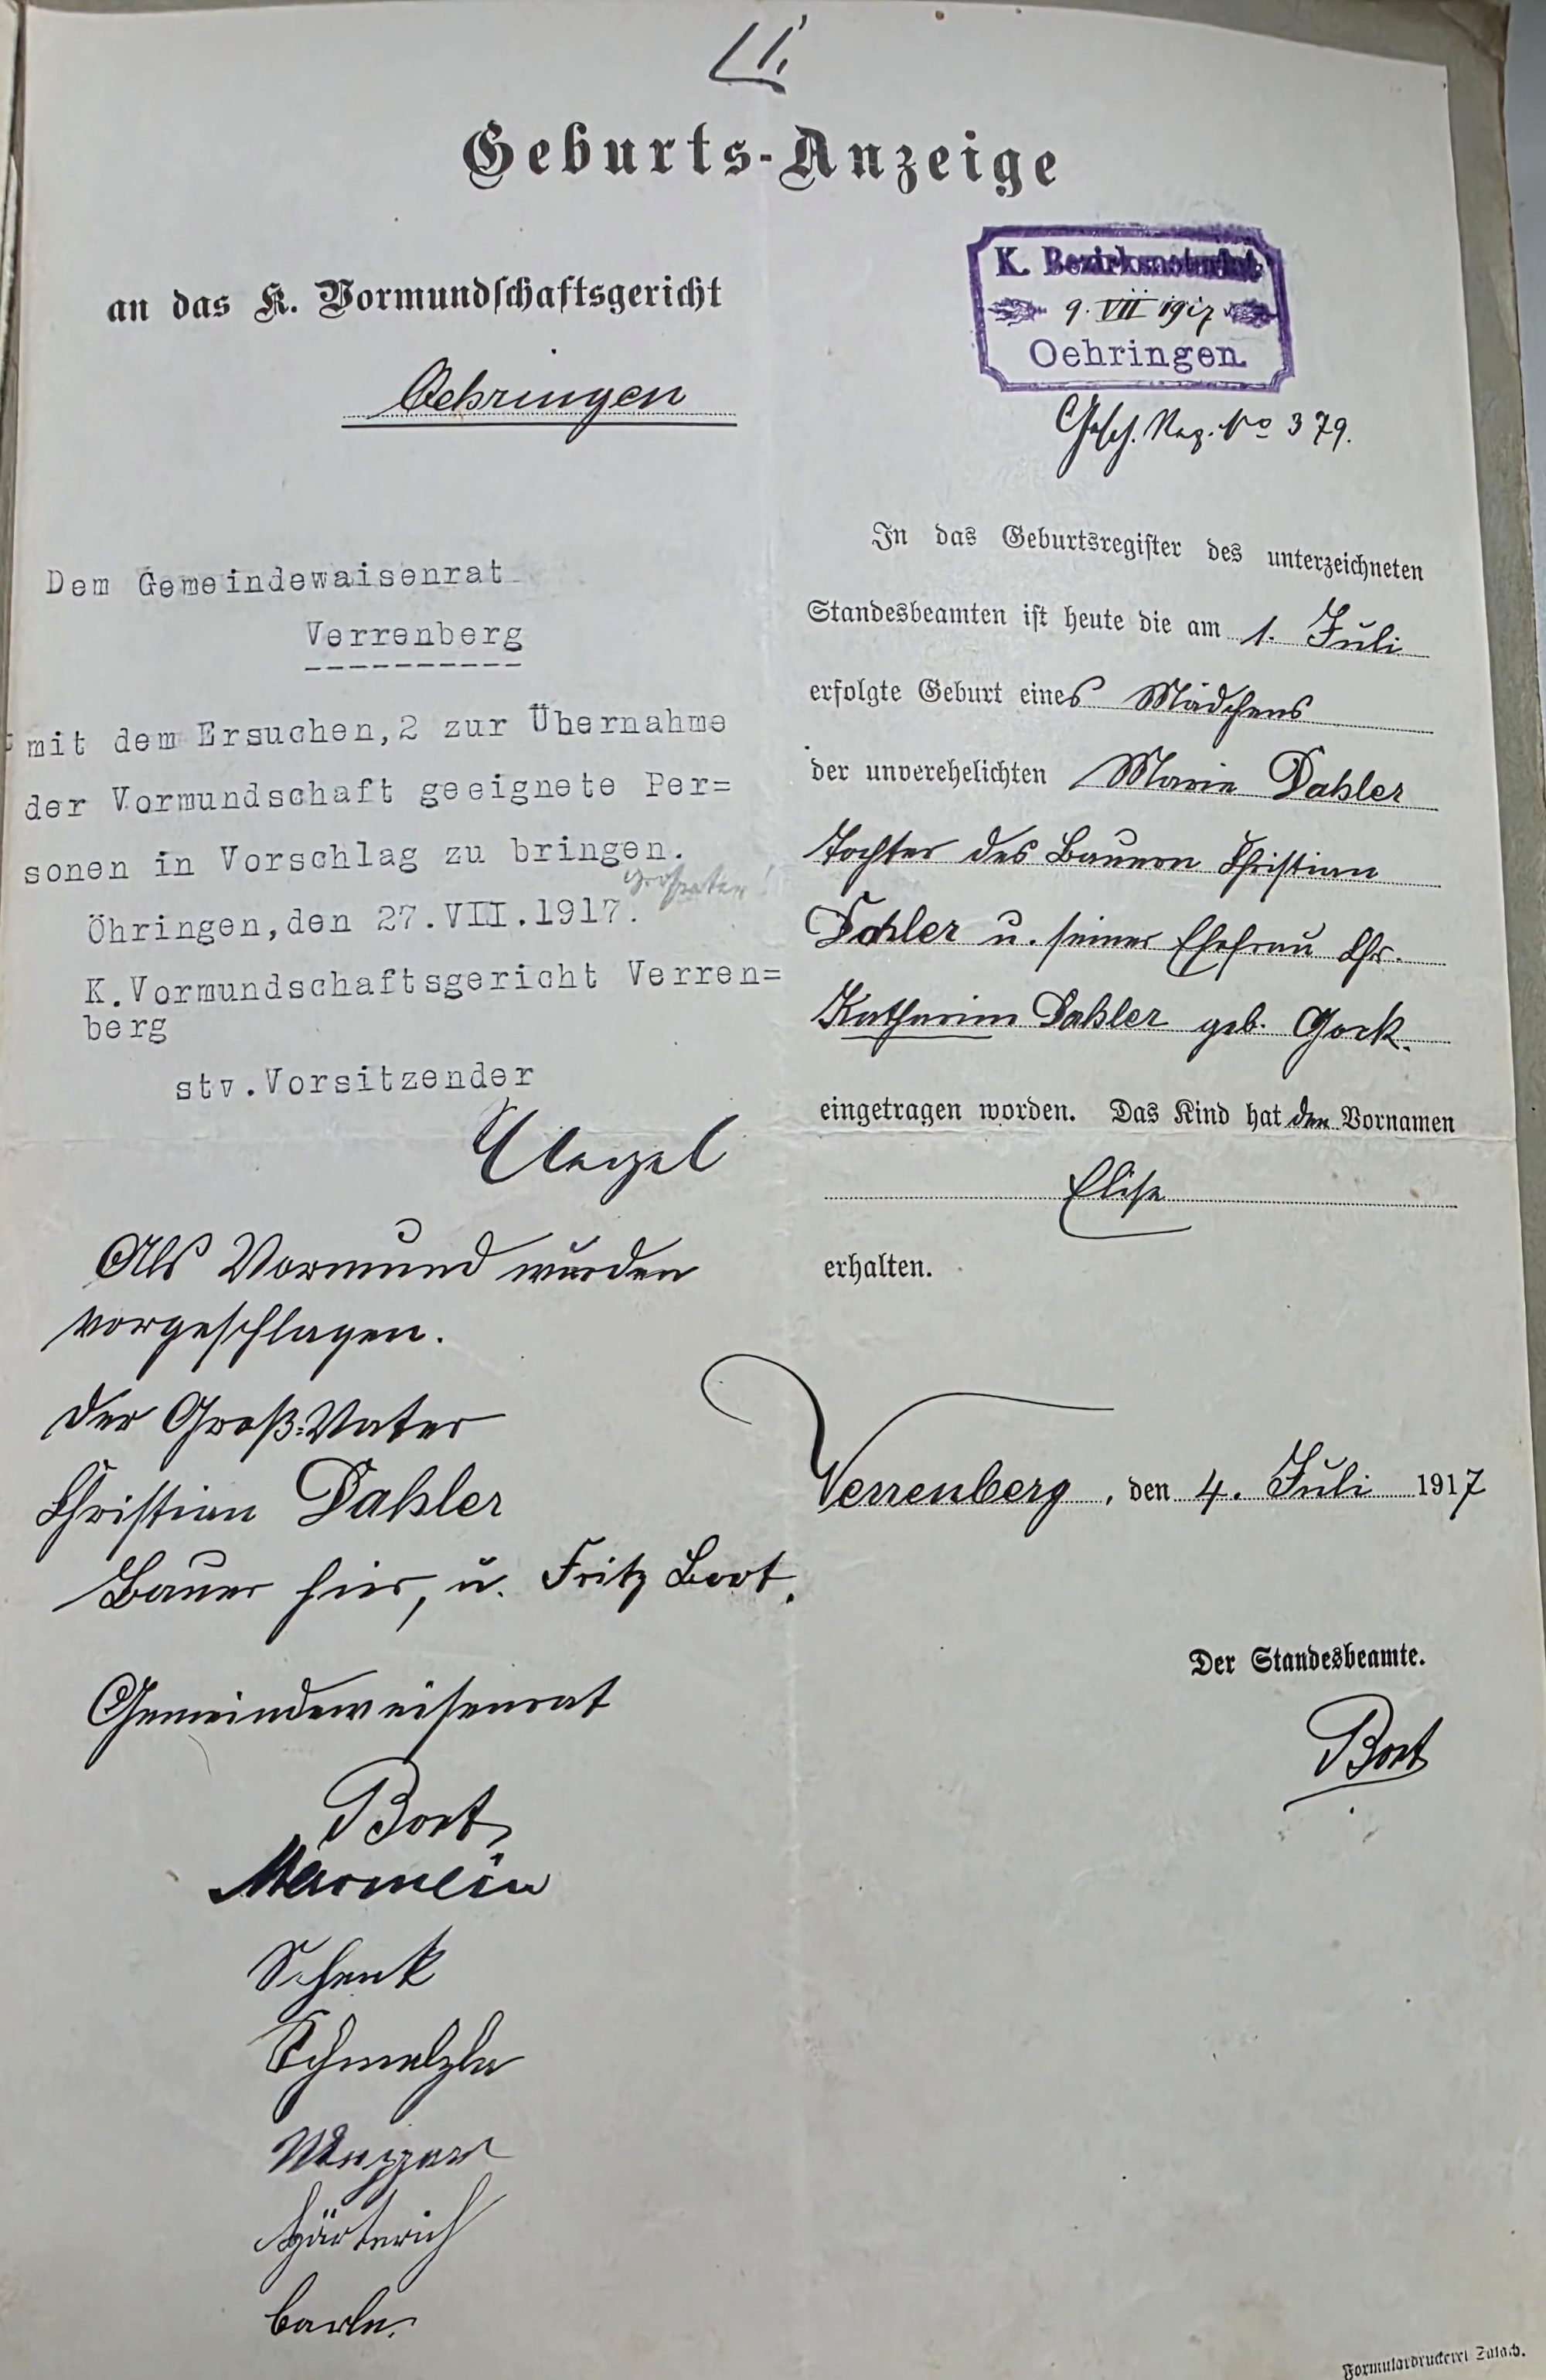 1.
Geburts-Anzeige
an das K. Vormundschaftsgericht
Oehringen
K. Bezirksnotariat
9. VII 1917
Oehringen
Gesch. Reg. No 379.
Dem Gemeindewaisenrat
Verrenberg
mit dem Ersuchen, 2 zur Übernahme
der Vormundschaft geeignete Per=
sonen in Vorschlag zu bringen.
Großvater!
Öhringen, den 27.VII.1917.
K.Vormundschaftsgericht Verren=
berg
stv.Vorsitzender
Als Vormund wurden
vorgeschlagen.
der Groß-Vater
Christian Dahler
Bauer hier, u. Fritz Bort.
Gemeindewaisenrat
Bort
Schenk
Härterich
In das Geburtsregister des unterzeichneten
Standesbeamten ist heute die am 1. Juli
erfolgte Geburt eines Mädchens
der unverehelichten Marie Dahler
Tochter des Bauern Christian
Dahler u. seiner Ehefrau Chr.
Katharine Dahler geb. Gock.
eingetragen worden. Das Kind hat den Vornamen
Elise
erhalten.
Verrenberg, den 4. Juli 1917
Der Standesbeamte.
Bort
Formulardruckerei